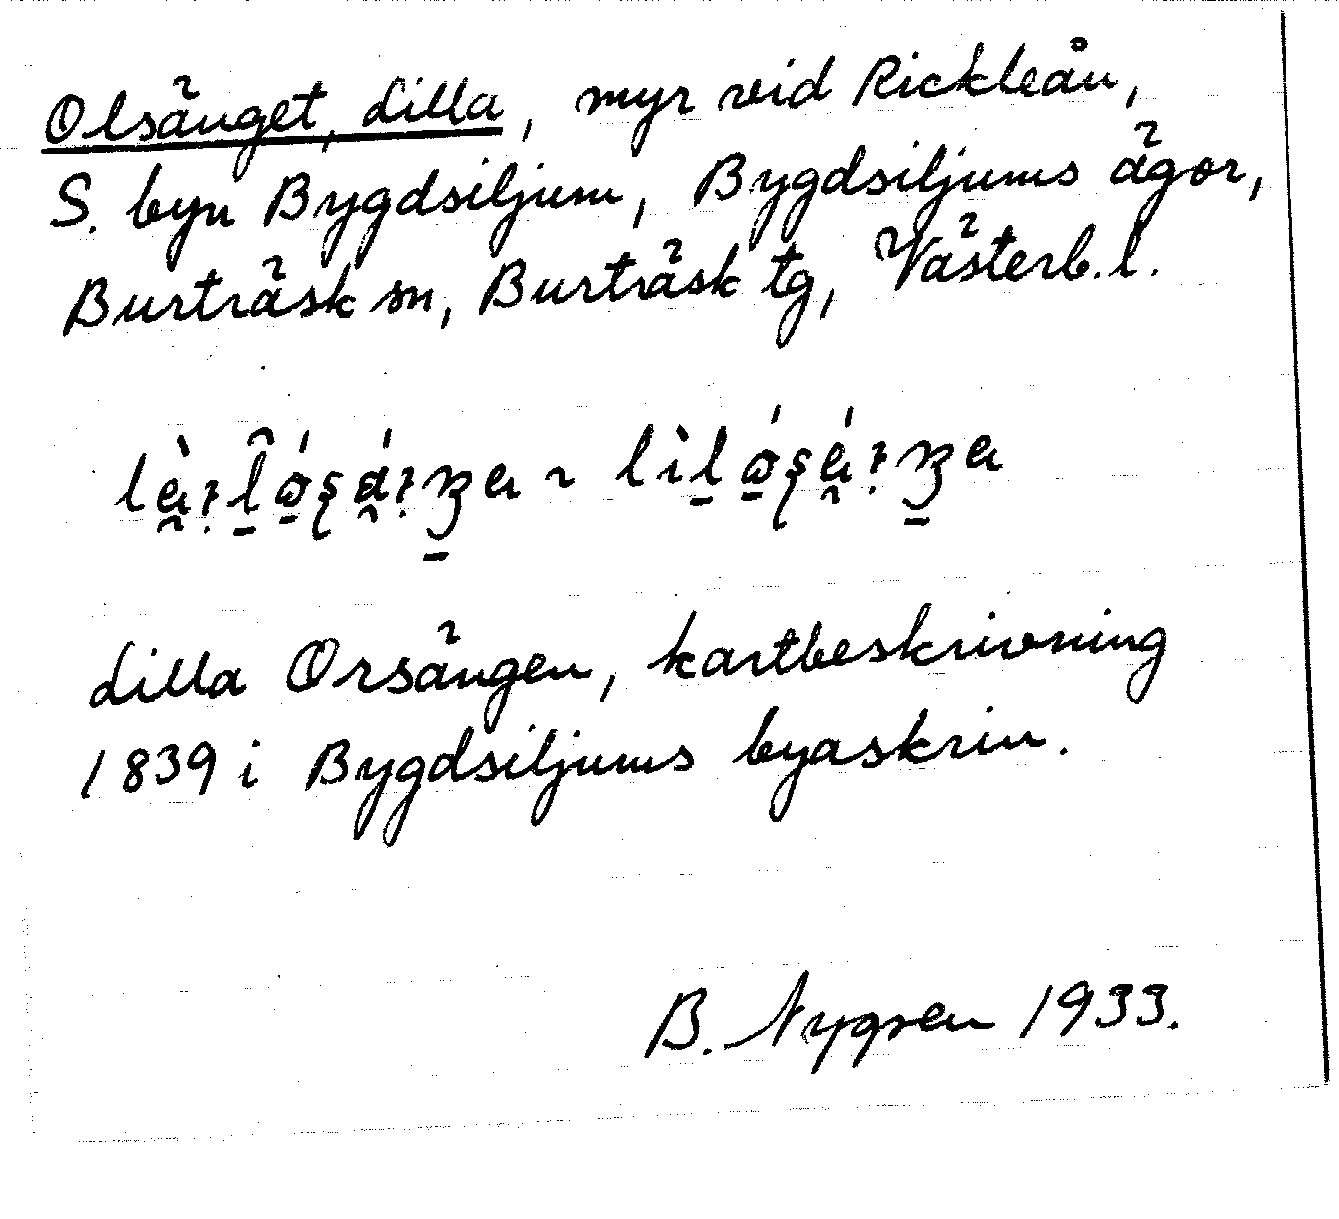 Olsänget, Lilla, myr vid Rickleån,
S. byn Bygdsiljum, Bygdsiljums ägor,
Burträsk sn, Burträsk tg, Västerb.l.
Lilla Orsängen, kartbeskrivning
1839 i Bygdsiljums byaskrin.
B. Nygren 1933.